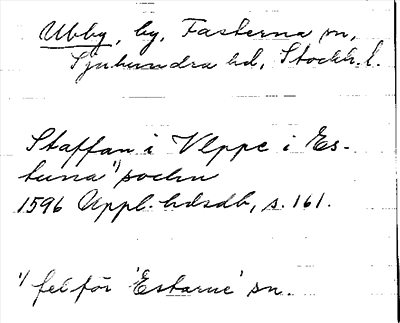 Ubby, by, Fasterna sn,
Sjuhundra hd, Stockh. l.
Staffan i Vlppe i Es-
tuna 1) sochn
1596 Uppl. hdsdb, s. 161.
1) fel för 'Estarne' sn.